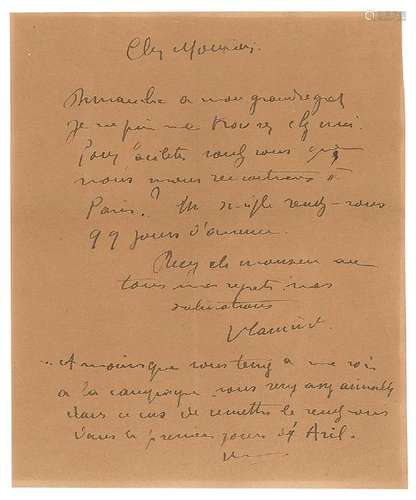 Cher Monsieur.
Dimanche a mon grand regret
Je ne puis me trouver chez moi.
Pour faciliter voulez vous que
nous nous rencontrions à
Paris? Un simple rendez-vous
99 jours d'avance.
Recevez cher monsieur avec
tous mes regrets mes
salutations
Vlaminck
A moins que vous teniez a me voir
a la campagne. vous serez assez aimable
dans ce cas de remettre le rendez vous
dans les premiers jours d' Avril.